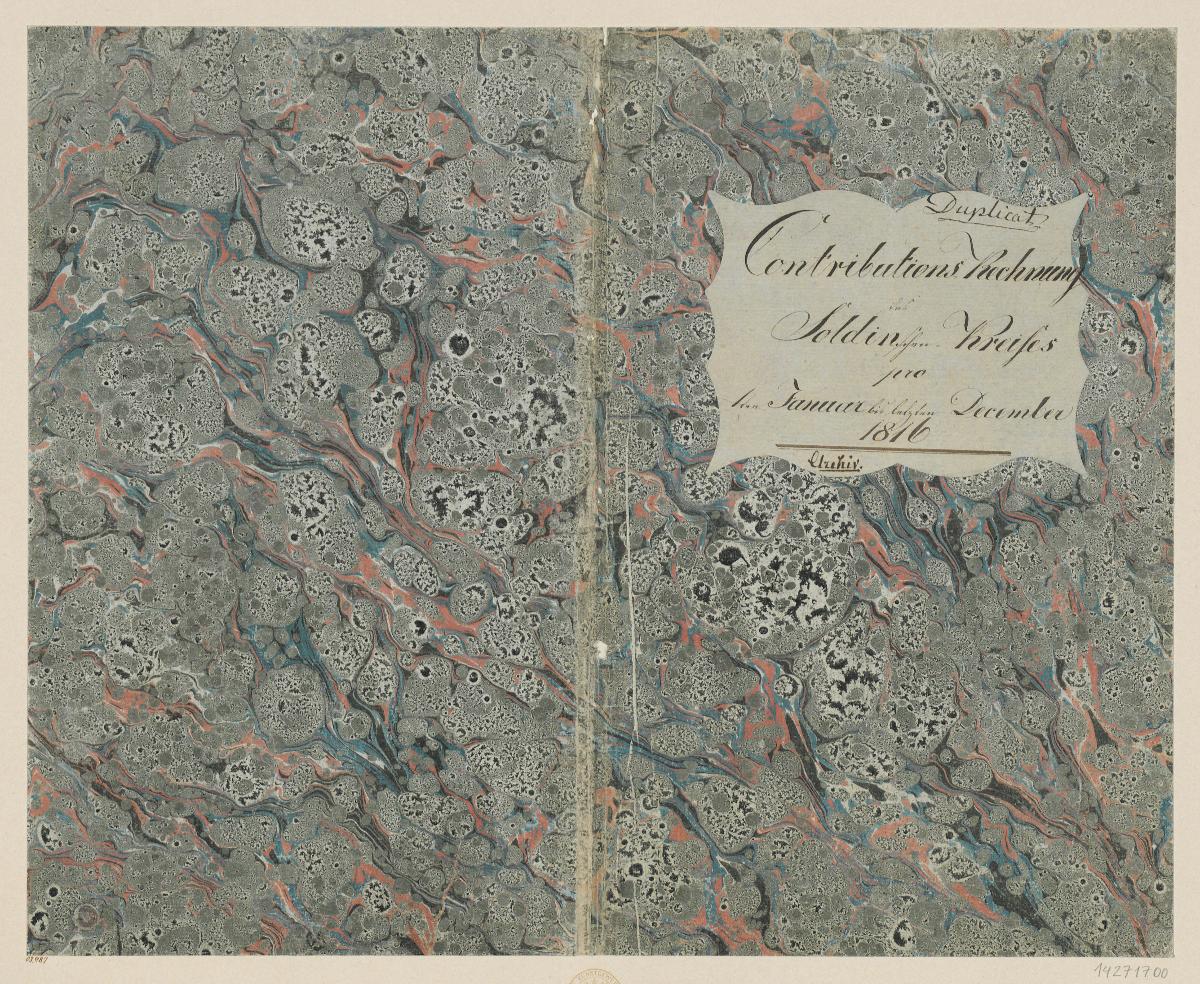 Duplicat
Contributions Rechnung
des
Soldinschen Kreises
pro
1ten Januar bis letzten December
1816
Archiv.
14271700